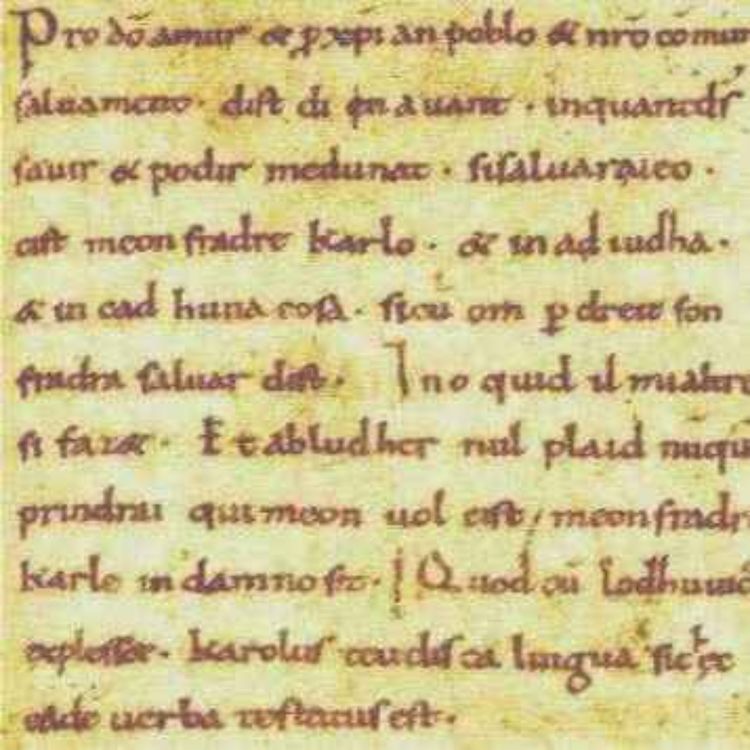 Pro dō amur & ꝑ xp̄ian poblo & nrō cōmun
saluament. dist di en auant. inquantdſ
sauir & podir medunat. sisaluaraieo.
cist meon fradre karlo. & in ad iudha.
& in cad huna cosa. sicū om ꝑ dreit son
fradra saluar dist. Ino quid il mialtre
si faz&. Et abludher nul plaid nūquā
prindrai qui meon uol cist, meonfradre
karle in damno sit. Quod cū lodhuuic
explesset. karolus teudisca lingua sic hęc
eadē uerba testatus est.